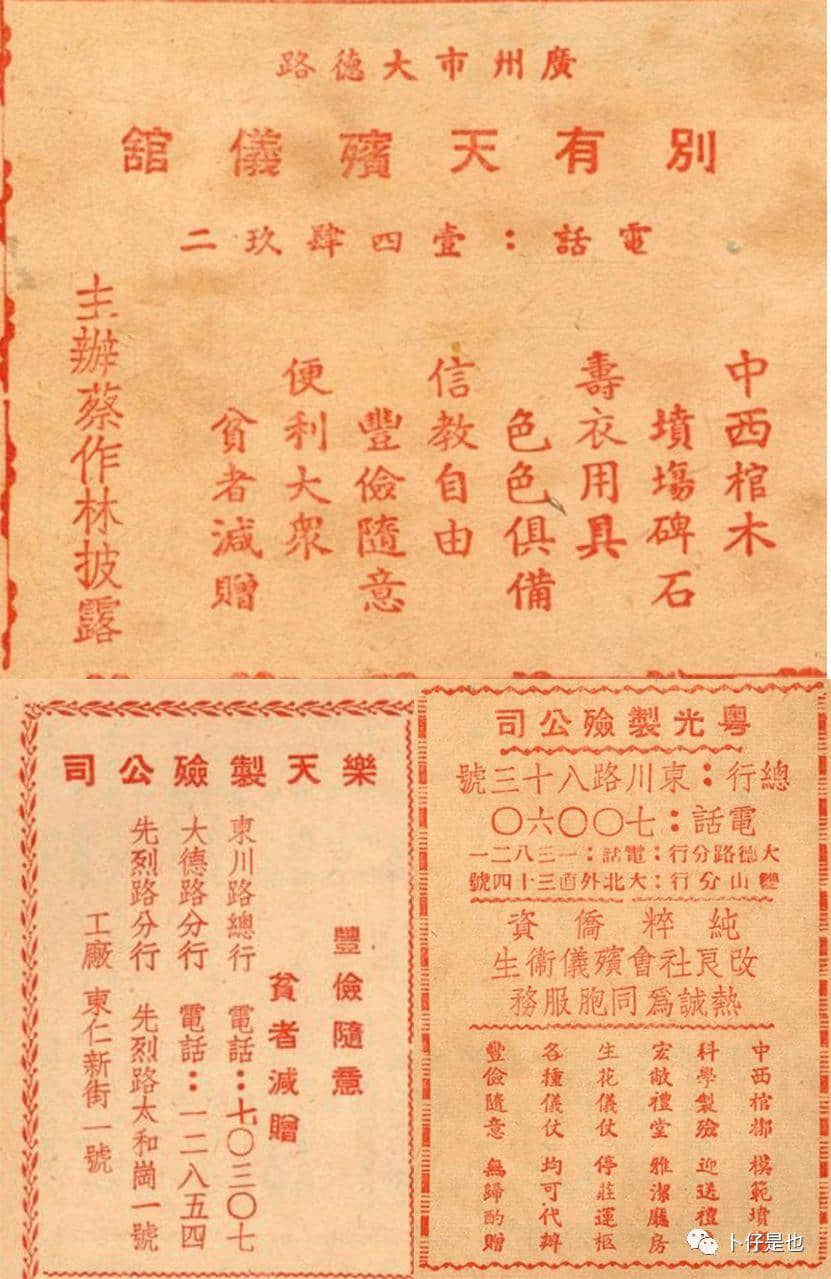 廣州市大德路
別有天殯儀舘
電話：壹四肆玖二
中西棺木
墳塲碑石
壽衣用具
色色俱備
信教自由
豐儉隨意
便利大衆
貧者減贈
主辦蔡作林披露
樂天製殮公司
豐儉隨意
貧者減贈
東川路總行 電話：七〇三〇七
大德路分行 電話：一二八五四
先烈路分行 先烈路太和崗一號
工廠 東仁新街一號
粤光製殮公司
總行：東川路八十三號
電話：七〇〇六〇
大德路分行：電話：一三八二一
山分行：大北外直三十四號
純粹僑資
改良社會殯儀衞生
熱誠爲同胞服務
中西棺槨 模範墳
科學製殮 迎送禮
宏敞禮堂 雅潔廳房
生花儀仗 停莊運柩
各種儀仗 均可代辦
豐儉隨意 無歸酌贈
卜仔是也